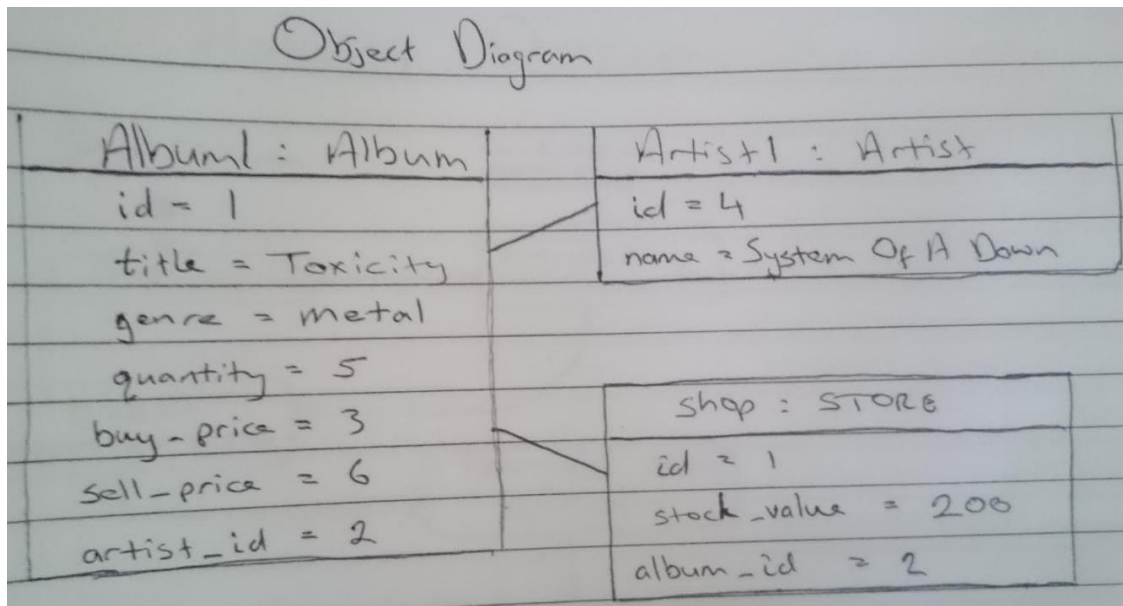 Object Diagram
Album1 : Album
id = 1
title = Toxicity
genre = metal
quantity = 5
buy_price = 3
sell_price = 6
artist_id = 2
Artist1 : Artist
id = 4
name = System Of A Down
shop : STORE
id = 1
stock_value = 200
album_id = 2